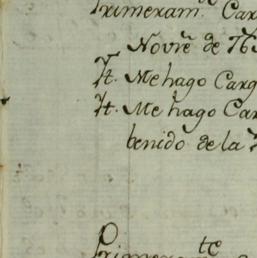 Primeram.te Car
Novre de 765
Yt. Me hago Carg
Yt. Me hago Car
benido de la
Primeram.te